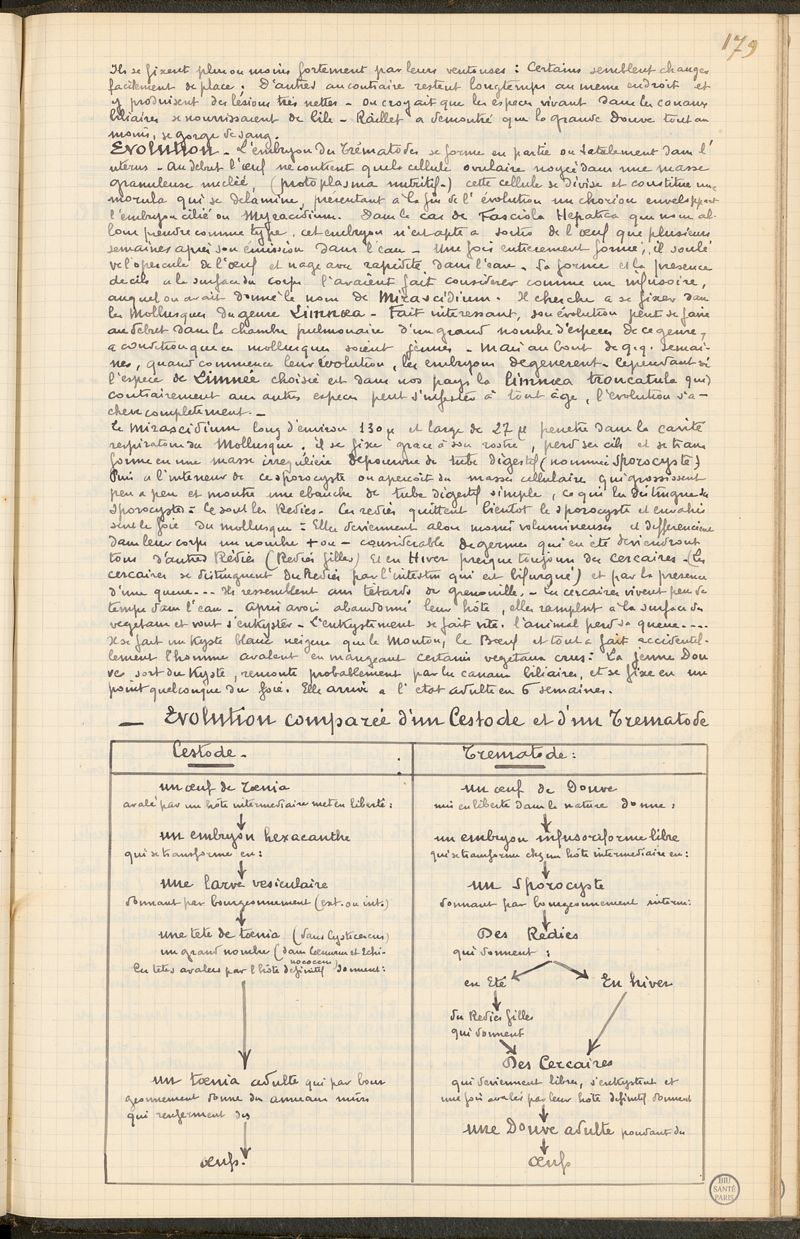 179
Ils se fixent plus ou moins fortement par leurs ventouses : Certains semblent changer
facilement de place ; D'autres au contraire restent longtemps au même endroit et
y produisent des lésions très nettes - On croyait que les especes vivant dans les canaux
biliaires se nourrissaient de bile - Raillet a demontré que la grande Douve tout au
moins, se gorge de sang.
Evolution - L'embryon du Trématodes se forme en partie ou totalement dans l'
uterus - Au debut l'œuf ne contient qu'une cellule ovulaire noyée dans une masse
granuleuse nucléé, (protoplasma nutritif-) cette cellule se divise et constitue une
morula qui se delamine, presentant à la fin de l'évolution un chorion enveloppant
l'embryon cilié ou Myracidium. Dans le cas de Fasciola Hepatica que nous al-
lons prendre comme type, cet embryon n'est apte a sortir de l'œuf que plusieurs
semaines après son émission dans l'eau - Une fois entierement formé, il soulè
ve l'opercule de l'œuf et nage avec rapidité dans l'eau - Sa forme et la presence
de cils a la surface du corps l'avaient fait considérer comme un infusoire,
auquel on avait donné le nom de Mirascidium. Il cherche a se fixer dans
les Mollusques du genre Limnæa - Fait interessant, son évolution peut se faire
au debut dans la chambre pulmonaire d'un grand nombre d'especes de ce genre,
a condition que ces mollusques soient jeunes - Mais au bout de q.q. semai-
nes, quand commence leur évolution, les embryons degenerent. Cependant si
l'espece de Limnée choisie est dans nos pays la limnæa troncatula qui
contrairement aux autres especes peut s'infester à tout âge, l'évolution s'a-
cheve completement. -
Le Mirascidium long d'environ 130 µ et large de 27 µ penetre dans la cavité
respiratoire du Mollusque, il se fixe grace à son rostre, perd ses cils et se trans
forme en une masse irreguliére depourvue de tube digestif (nommée Sporocyste)
Puis a l'interieur de ce sporocyste on aperçoit des masses cellulaires qui grossissent
peu a peu et montre une ebauche de tube digestif simple, ce qui les distingue des
Sporocystes = Ce sont les Redies - Ces redies quittent bientot le sporocyste et envahis
sent le foie du mollusque = Elles deviennent alors moins volumineuses et differencient
dans leur corps un nombre + ou - considerable de germes qui en été deviendront
tous d'autres Rédies (Redies filles) Et en Hiver presque toujours des cercaires - (Les
cercaires se distinguent des Redies par l'intestin qui est bifurqué) et par la presence
d'une queue--- Ils ressemblent aux tétards de grenouille. - Les cercaires vivent peu de
temps dans l'eau - Après avoir abandonné leur hôte, elles rampent a la surface des
vegetaux et vont s'enkyster - L'enkystement se fait vite. l'animal perd sa queue....
Il se fait un Kyste blanc neigeux que le Mouton, le Bœuf et tout a fait accidentel-
lement l'homme avalent en mangeant certains vegetaux crus. La jeune Dou
ve sort du Kyste, remonte probablement par les canaux biliaires, et se fixe en un
point quelconque du foie. Elle arrive a l'état adulte en 6 semaines.
— Evolution comparée d'un Cestode et d'un Trematode
Cestode -
un œuf de Tœnia
avalé par un hôte intermediaire met en liberté :
un embryon hexacanthe
qui se transforme en :
une larve vesiculaire
donnant par bourgeonnement (ext. ou int.)
une tete de tœnia (dans Cysticercus)
un grand nombre (dans Cœnurus et Echi-
nococcus)
Ces tetes avalées par l'hôte definitif donnent :
un tœnia adulte qui par bour
geonnement donne des anneaux mûrs
qui renferment des
œufs.
Trematode :
un œuf de Douve
mis en liberté dans la nature donne :
un embryon infusoriforme libre
qui se transforme chez un hôte intermediaire en :
un Sporocyste
donnant par bourgeonnement interne :
Des Rédies
qui donnent :
en Eté
En hiver
des Redies filles
qui donnent
Des Cercaires
qui deviennent libres, s'enkystent et
une fois avalés par leur hôte definitif donnent
une Douve adulte pondant des
œufs
BIU
SANTÉ
PARIS